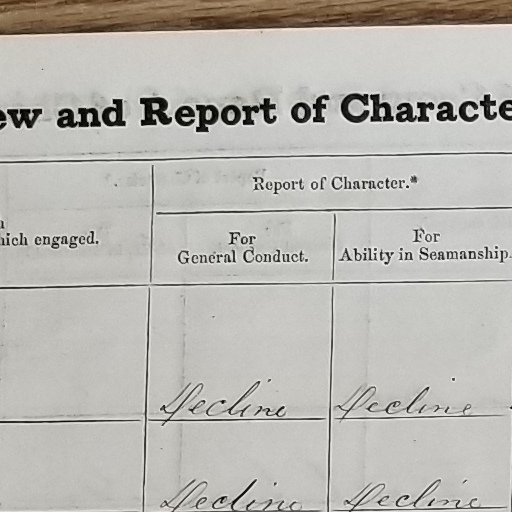 ew and Report of Characte
Report of Character.*
hich engaged.
For
General Conduct.
For
Ability in Seamanship.
Decline
Decline
Decline
Decline